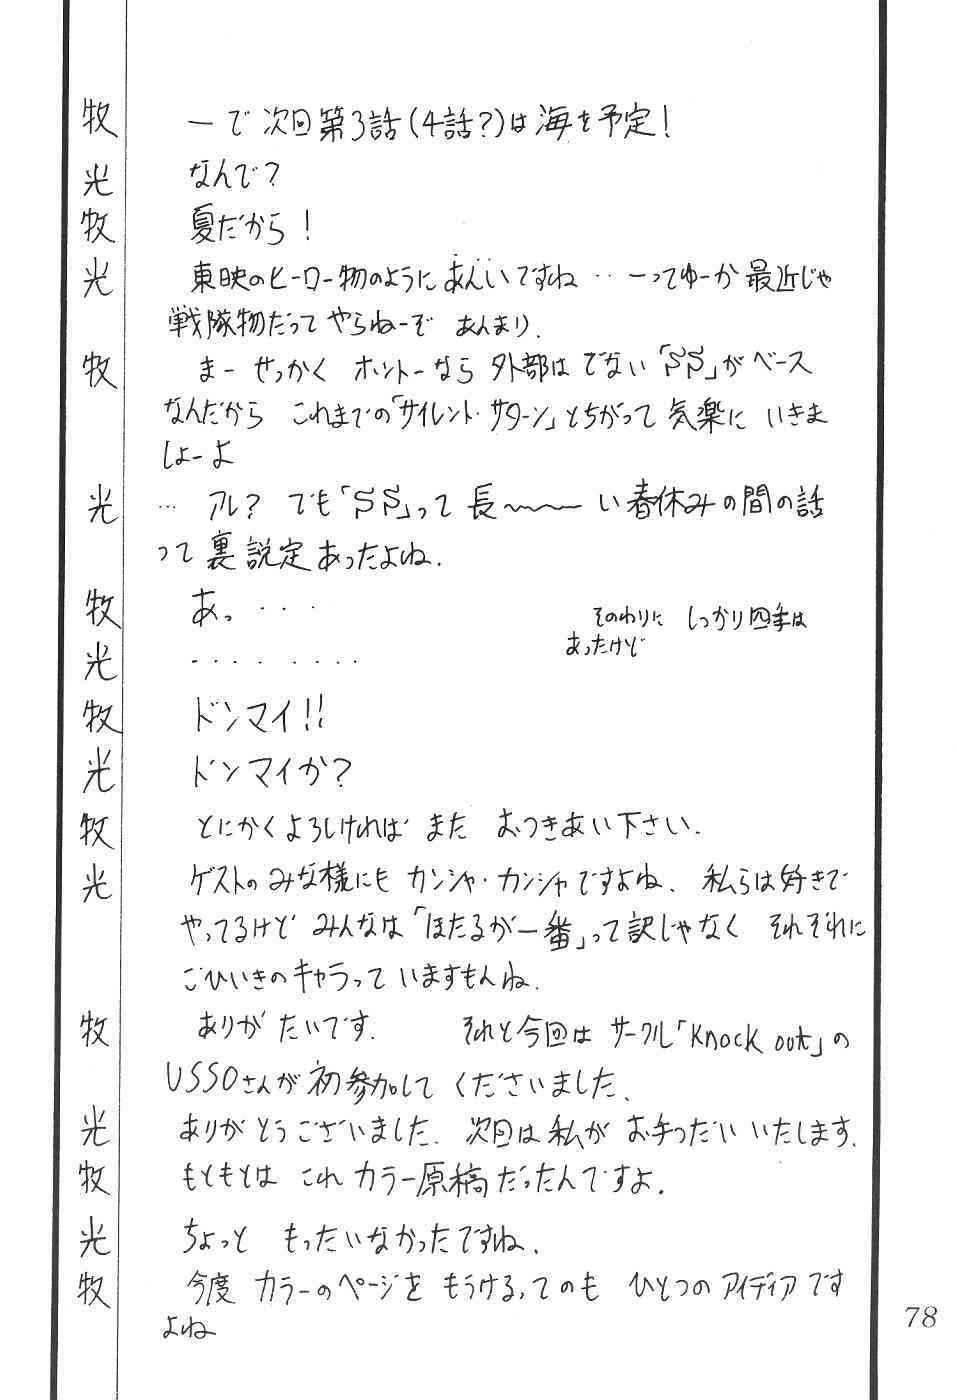 牧 ーで 次回第3話(4話?)は海を予定!
光 なんで?
牧 夏だから!
光 東映のヒーロー物のようにあんいですね…ーってゆーか 最近じゃ
戦隊物だって やらねーぞ あんまり.
牧 まー せっかく ホントーなら 外部は でない「SS」がベース
なんだから これまでの「サイレント・サターン」とちがって 気楽に いきま
しょーよ
光 … アレ? でも「SS」って 長〜〜〜い春休みの間の話
って 裏設定あったよね.
牧 あっ・・・
そのわりに しっかり四季は
あったけど
光 ・・・・・・・・
牧 ドンマイ!!
光 ドンマイか?
牧 とにかくよろしければ また おつきあい下さい.
光 ゲストのみな様にも カンシャ・カンシャですよね、私らは好きで
やってるけど みんなは「ほたるが一番」って訳じゃなく それぞれに
ごひいきのキャラって いますもんね.
牧 ありがたいです. それと今回は サークル「Knock out」の
USSOさんが初参加して くださいました.
光 ありがとうございました. 次回は私が お手つだい いたします.
牧 もともとは これ カラー原稿だったんですよ.
光 ちょっと もったいなかったですね.
牧 今度 カラーのページを もうけるってのも ひとつのアイディアです
よね
78